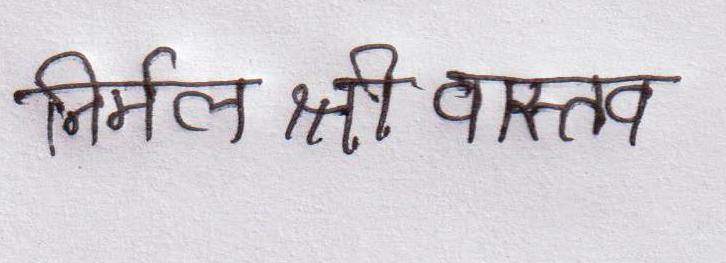 निर्मल श्री वास्तव